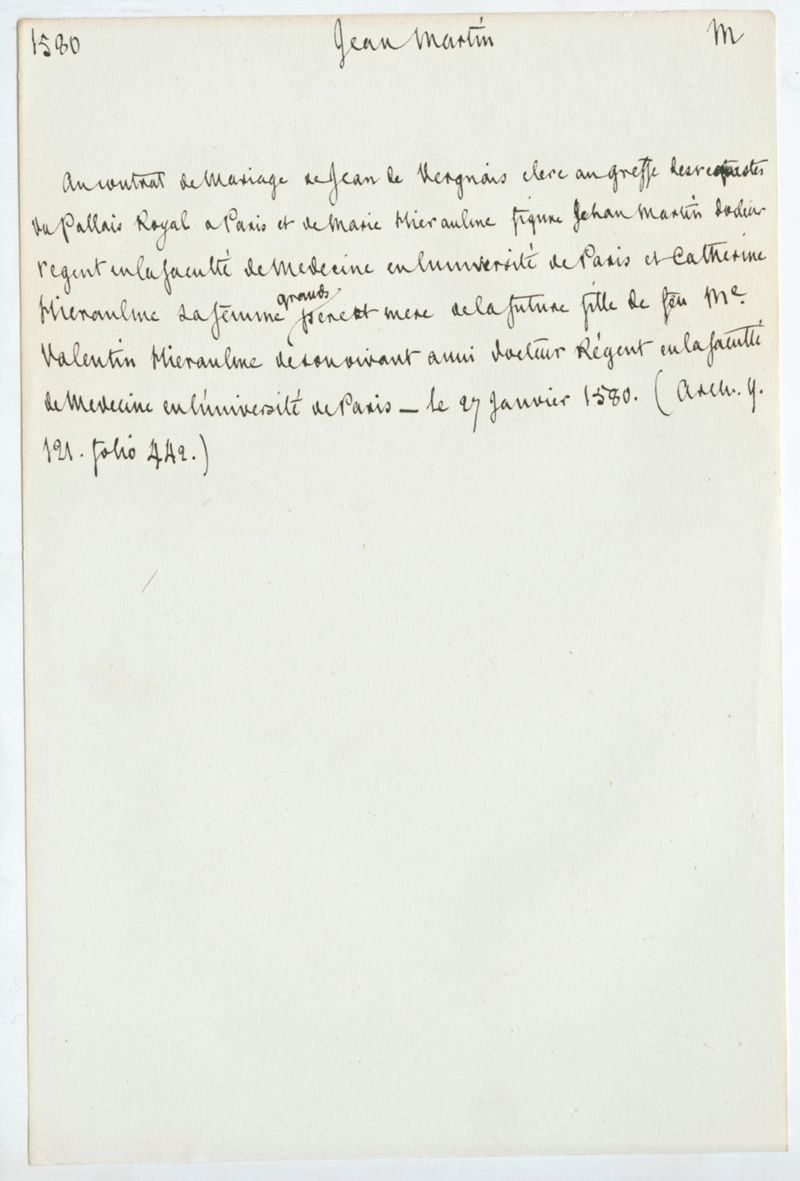 1580 Jean Martin M
Au contrat de Mariage de Jean de Vergnais clerc au greffe des requestes
du Pallais Royal a Paris et de Marie Hieraulme figure Jehan Martin docteur
regent en la faculté de Medecine en l'université de Paris et Catherine
Hieraulme sa femme grands pere et mere de la future fille de feu Me.
Valentin Hieraulme de son vivant aussi docteur Régent en la faculté
de Medecine en l'université de Paris — le 27 Janvier 1580. (Arch. y.
121. folio 442.)